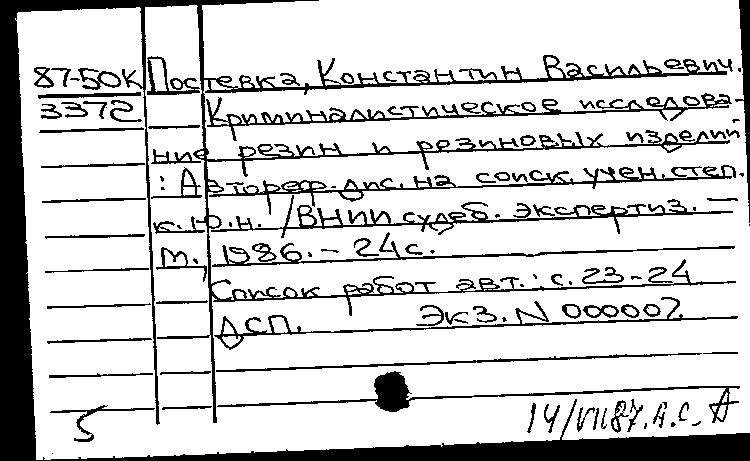 87-50К Постевка, Константин Васильевич.
3372 Криминалистическое исследова-
ние резин и резиновых изделий
: Автореф. дис. на соиск. учен. степ.
к.ю.н. /ВНИИ судеб. экспертиз. —
М., 1986. - 24 с.
Список работ авт.: с. 23-24
ДСП. Экз. N 000007
5 14/VII87. А.С. А